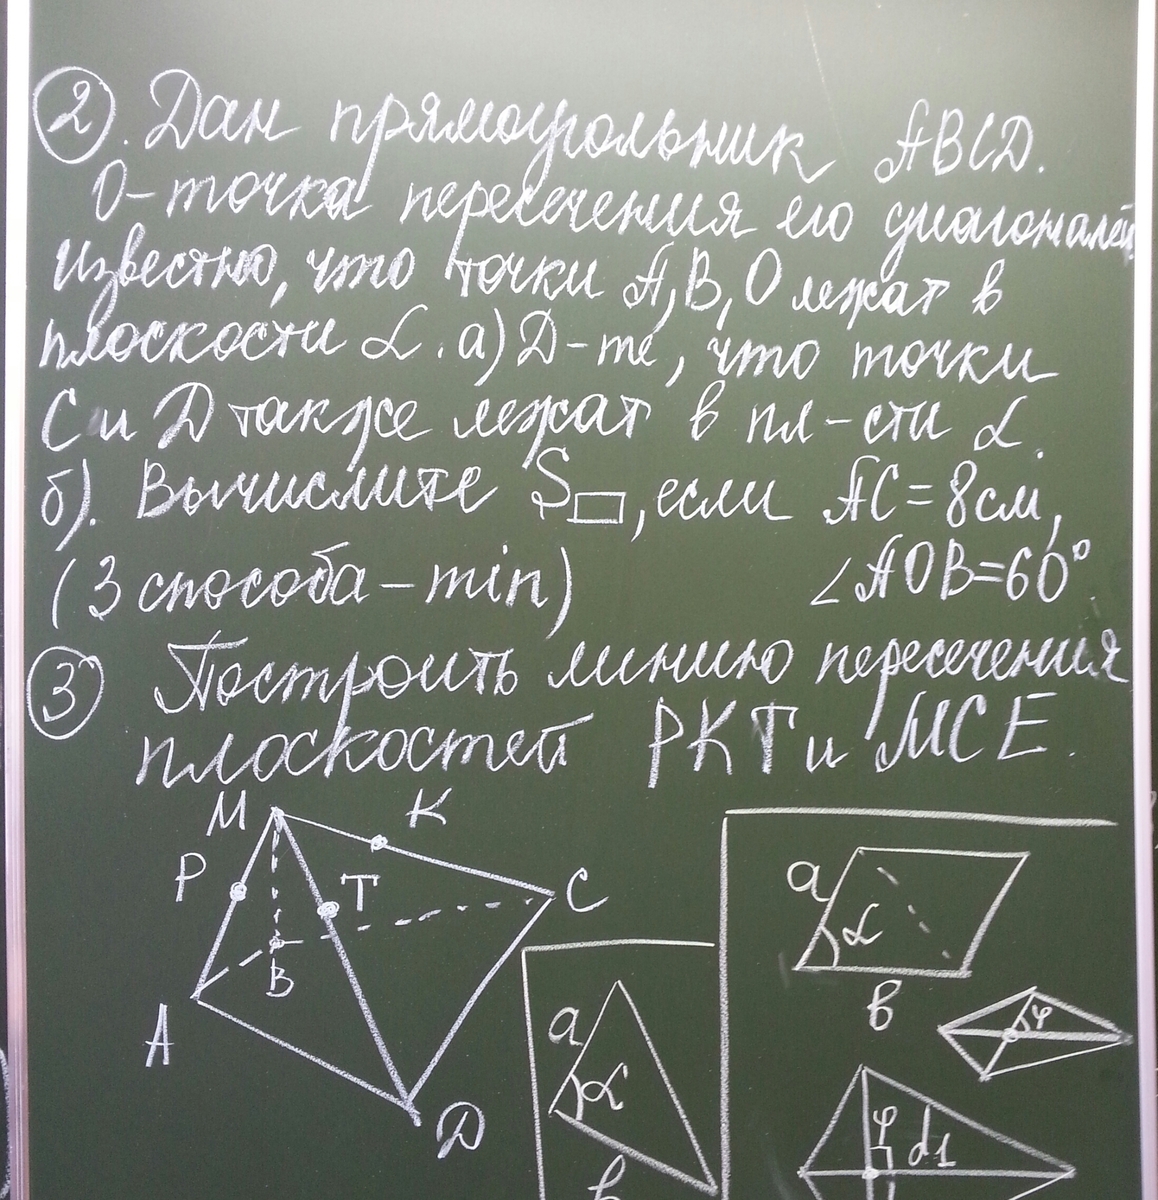 2. Дан прямоугольник ABCD.
О-точка пересечения его диагоналей
известно, что точки А, В, О лежат в
плоскости α. а) Д-те, что точки
С и D также лежат в пл-сти α.
б). Вычислите S▭, если AC = 8см,
(3 способа - min) ∠AOB=60°.
3 Построить линию пересечения
плоскостей PKT и MCE.
M K
P T C
B
A
D
a α в
a α в
φ
φ d1